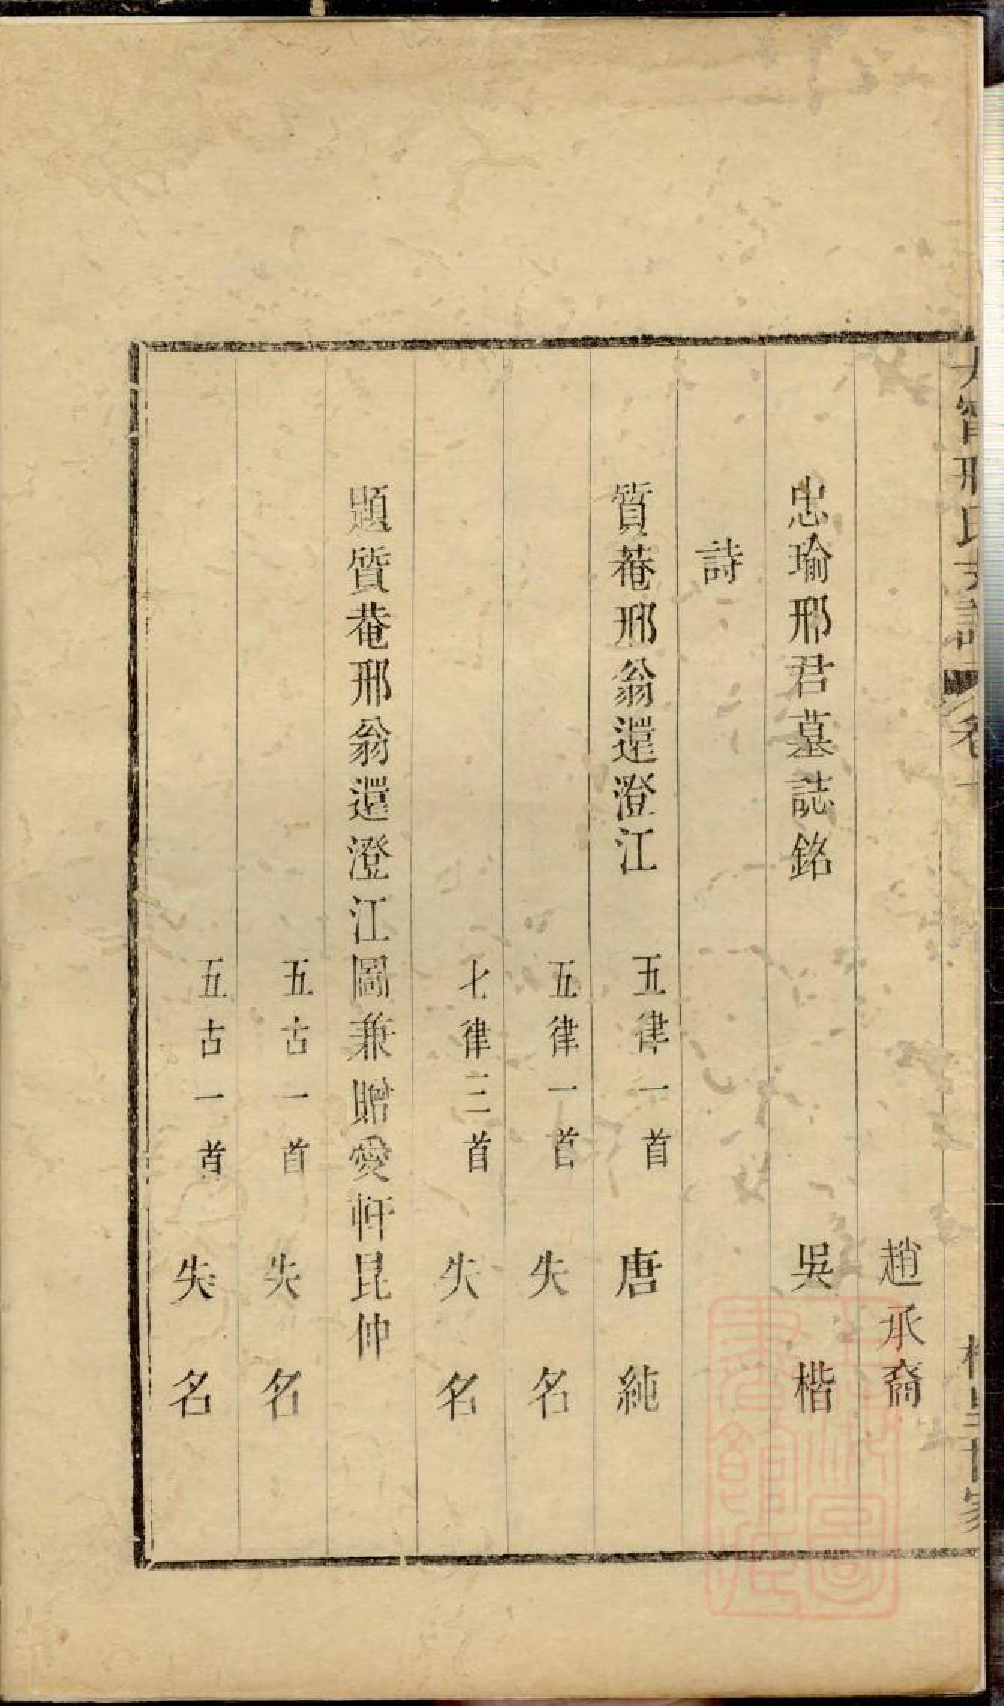 趙承裔
忠瑜邢君墓誌銘 吳楷
詩
質菴邢翁還澄江 五律一首 唐純
五律一首 失名
七律二首 失名
題質菴邢翁還澄江圖兼贈愛軒昆仲
五古一首 失名
五古一首 失名